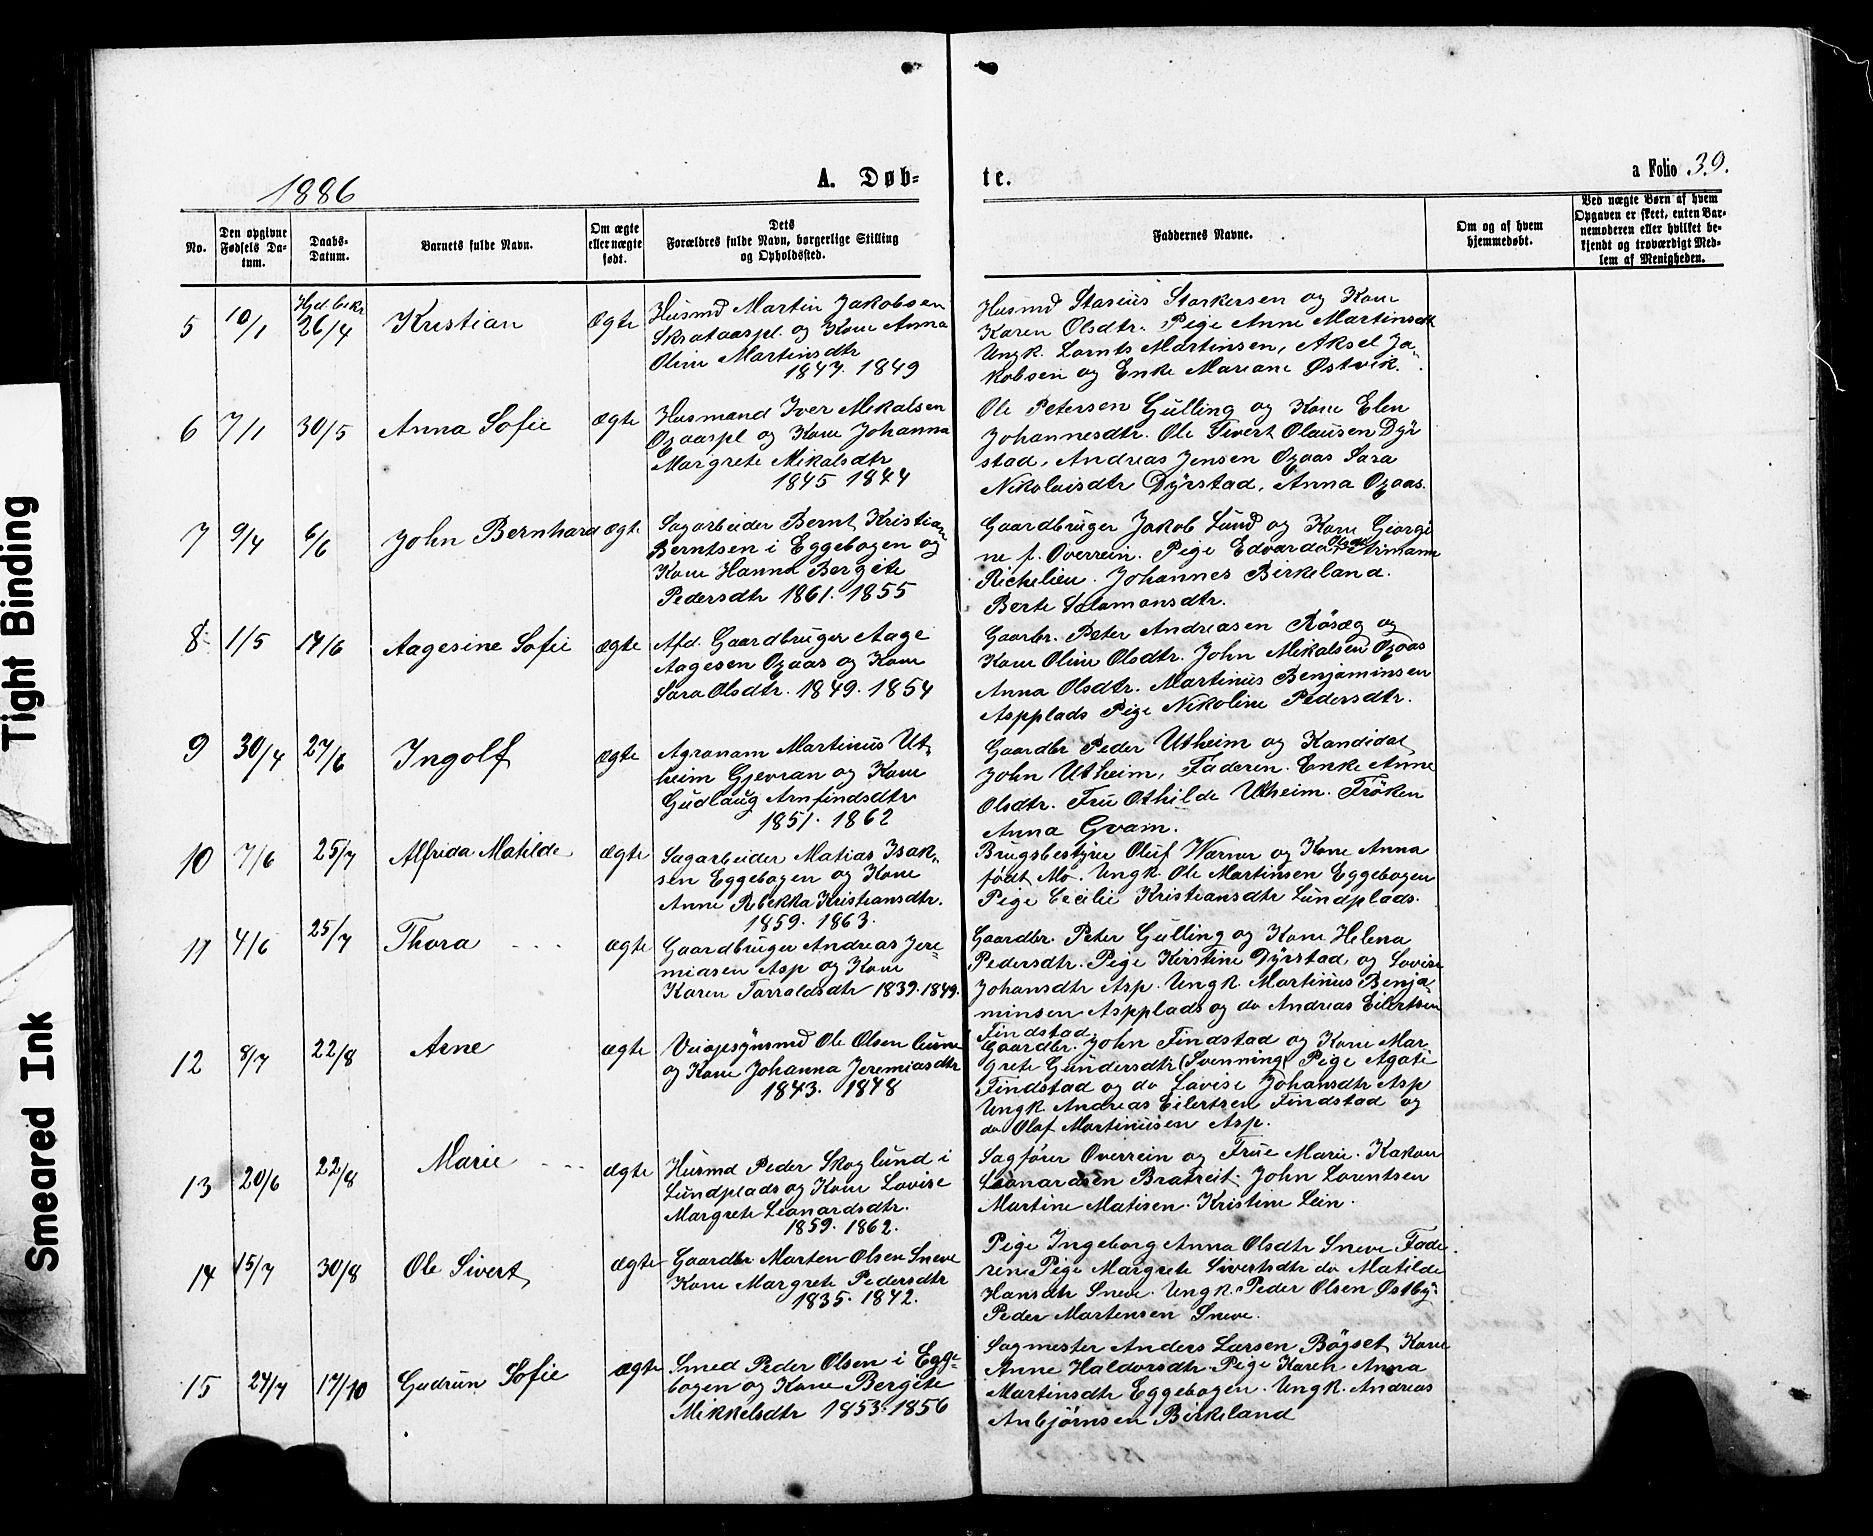 1886
A. Døb-
te.
a Folio 39.
No.
Den opgivne Fødsels Da-tum.
Daabs-Datum.
Barnets fulde Navn.
Om ægte eller uægte født.
Dets Forældres fulde Navn, borgerlige Stilling og Opholdssted.
Faddernes Navne.
Om og af hvem hjemmedøbt.
Ved uægte Børn af hvem Opgaven er skeet, enten Bar-nemoderen eller hvilket be-kjendt og troværdigt Med-lem af Menigheden.
5 10/1 Hjd. bekr. 26/4 Kristian Ægte
Husmd Martin Jakobsen
Skrataaspl. og Kone Anna
Oline Martinsdtr
1847. 1849
Husmd Starkersen og Kone
Karen Olsdtr. Pige Anne Martinsdtr
Ungk. Lornts Martinsen, Aksel Ja-
kobsen og Enke Mariane Østvik.
6 7/1 30/5 Anna Sofie ægte
Husmand Iver Mikalsen
Ogaaspl og Kone Johanna
Margrete Mikalsdtr
1845 1844
Ole Petersen Gulling og Kone Elen
Johannesdtr. Ole Sivert Olausen Dyr
stad, Andreas Jensen Ogaas Sara
Nikolaisdtr Dyrstad, Anna Ogaas.
7 9/4 6/6 John Bernhard ægte
Sagarbeider Bernt Kristian
Berntsen i Eggebogen og
Kone Hanna Bergite
Pedersdtr 1861. 1855
Gaardbruger Jakob Lund og Kone Georgi
ne f. Overrein. Pige Edvarda
Richelieu. Johannes Birkeland.
Berte Salamonsdtr.
8 1/5 14/6 Aagesine Sofie ægte
Afd. Gaardbruger Aage
Aagesen Ogaas og Kone
Sara Olsdtr. 1849. 1854
Gaarbr. Peter Andreasen Røsæg og
Kone Oline Olsdtr. John Mikalsen Ogaas
Anna Olsdtr. Martinus Benjaminsen
Aspplads Pige Nikoline Pedersdtr.
9 30/4 27/6 Ingolf ægte
Agronom Martinus Ut-
heim Gjevran og Kone
Gudlaug Arnfindsdtr
1851. 1862
Gaardbr Peder Utheim og Kandidat
John Utheim, Faderen. Enke Anne
Olsdtr. Fru Othilde Utheim. Frøken
Anna Gvam.
10 7/6 25/7 Alfrida Matilde ægte
Sagarbeider Matias Isak-
sen Eggebogen og Kone
Anne Rebekka Kristiansdtr.
1859. 1863.
Brugsbestyrer Oluf Warner og Kone Anna
født Mo. Ungk. Ole Martinsen Eggebogen
Pige Cecilie Kristiansdtr Lundplads.
11 4/6 25/7 Thora ægte
Gaardbruger Andreas Jere-
miasen Asp og Kone
Karen Torraldsdtr 1839. 1849.
Gaardbr. Peter Gulling og Kone Helena
Pedersdtr. Pige Kirstine Dyrstad og Lovise
Johansdtr Asp. Ungk. Martinus Benja-
minsen Aspplads og do Andreas Eilertsen
Findstad.
12 8/7 22/8 Arne ægte
Veiopsynsmd Ole Olsen
og Kone Johanna Jeremiasdtr
1843. 1848
Gaardbr. John Findstad og Kone Mar
grete Gundersdtr (Svenning) Pige Agate
Findstad og do Lovise Johansdtr Asp
Ungk. Andreas Eilertsen Findstad og
do Olaf Martinusen Asp.
13 20/6 22/8 Marie ægte
Husmd Peder Skoglund i
Lundplads og Kone Lovise
Margrete Leonardsdtr.
1859. 1862.
Sagfører Overrein og Frue Marie.
Leonardsen Bratreit. John Lorentsen
Martine Matisen. Kristine Lein.
14 15/7 30/8 Ole Sivert ægte
Gaardbr Morten Olsen Sneve
Kone Margrete Pedersdtr
1835. 1842.
Pige Ingeborg Anna Olsdtr Sneve Fade
ren Pige Margrete Sivertsdtr do Matilde
Hansdtr Sneve. Ungk. Peder Olsen Østby.
Peder Martensen Sneve.
15 27/7 17/10 Gudrun Sofie ægte
Smed Peder Olsen i Egge-
bogen og Kone Bergite
Mikkelsdtr 1853. 1856
Sagmester Anders Larsen Bøgset Kone
Anne Haldorsdtr. Pige Karen Anna
Martinsdtr Eggebogen. Ungk. Andreas
Anbjørnsen Birkeland
Tight Binding
Smeared Ink